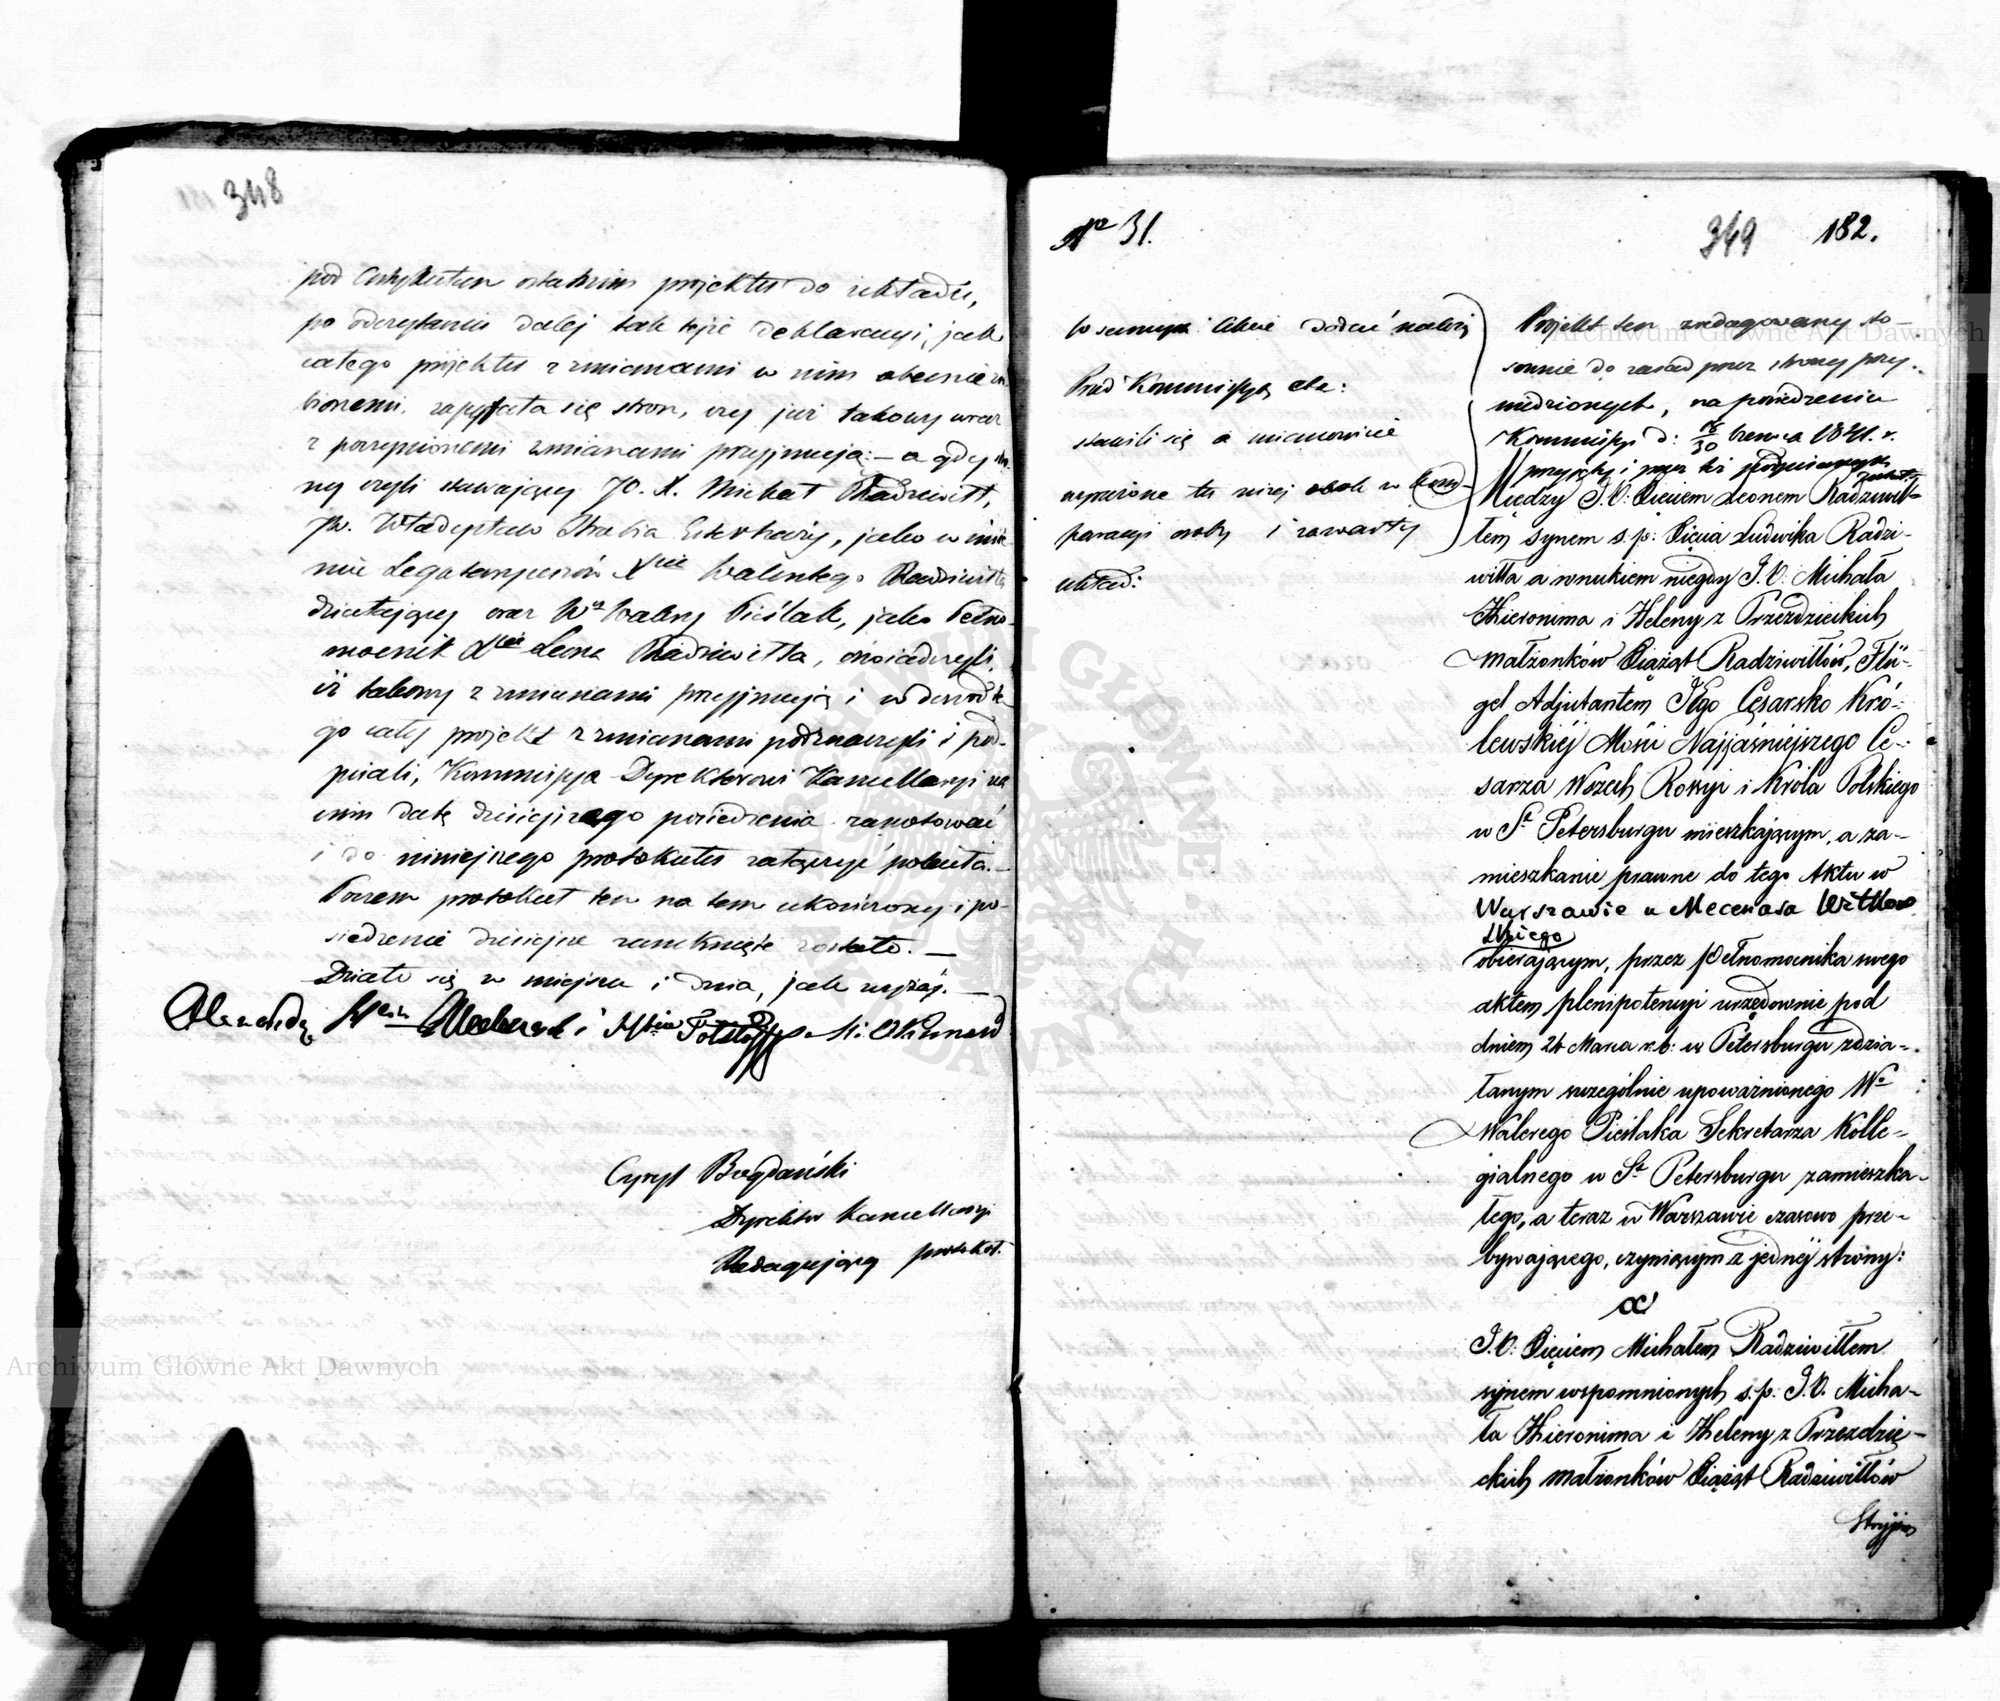 348
pod Artykułem ostatnim projektu do układu,
po odczytaniu dalej tak tejże deklaracyi, jak
całego projektu z zmianami w nim obecnie
bionemi, zapytała się stron, czy już takowy wraz
z poczynionemi zmianami przyjmują: — a gdy
ny czyli stawający JO. X. Michał Radziwiłł,
JW. Władysław Hrabia jako w imie-
niu Legataryuszów Xcia Walentego Radziwiłła
działający oraz Wny Walery Pieślak, jako Pełno-
mocnik Xcia Leona Radziwiłła, oświadczyli,
iż takowy z zmianami przyjmują i w dowód te
go cały projekt z zmianami podznaczyli i pod-
pisali, Kommissya Dyrektorowi Kancellaryi na
nim datę dzisiejszego posiedzenia zanotować
i do niniejszego protokułu załączyć poleciła. —
Poczem protokuł ten na tem ukończony i po-
siedzenie dzisiejsze zamknięte zostało. —
Działo się w miejscu i dnia, jak wyżej. —
Cyryl Bogdański
Dyrektor Kancellaryi
Redagujący protokół.
No 31.
349 182.
W samym Akcie dodać należy
Przed Kommissyą etc:
stawili się a mianowicie
wyrażone tu niżej obok w kom-
paracyi osoby i zawarły
układ:
Projekt ten zredagowany sto-
sownie do zasad przez strony przy-
wiedzionych, na posiedzeniu
Kommissyi d: 18/30 Czerwca 1841. r.
przyjęty i przez też podpisany
Między J.O: Xięciem Leonem Radziwił-
łem synem s.p: Xięcia Ludwika Radzi-
wiłła a wnukiem niegdy J.O: Michała
Hieronima i Heleny z Przeździeckich
małżonków Xiążąt Radziwiłłów, Flü-
gel Adjutantem Jego Cesarsko Kró-
lewskiéj Mości Najjaśniejszego Ce-
sarza Wszech Rossyi i Króla Polskiego
w St Petersburgu mieszkającym, a za-
mieszkanie prawne do tego Aktu w
Warszawie u Mecenasa Wittkow
skiego
obierającym, przez Pełnomocnika swego
aktem plenipotencyi urzędownie pod
dniem 24 Marca r. b: w Petersburgu zdzia-
łanym szczególnie upoważnionego Wo
Walerego Pieślaka Sekretarza Kolle-
gialnego w St Petersburgu zamieszka-
łego, a teraz w Warszawie czasowo prze-
bywającego, czyniącym z jednéj strony:
a
J.O: Xięciem Michałem Radziwiłłem
synem wspomnionych s.p: J.O. Micha-
ła Hieronima i Heleny z Przeździe-
ckich małżonków Xiążąt Radziwiłłów
Stryjem
Archiwum Główne Akt Dawnych
Archiwum Główne Akt Dawnych